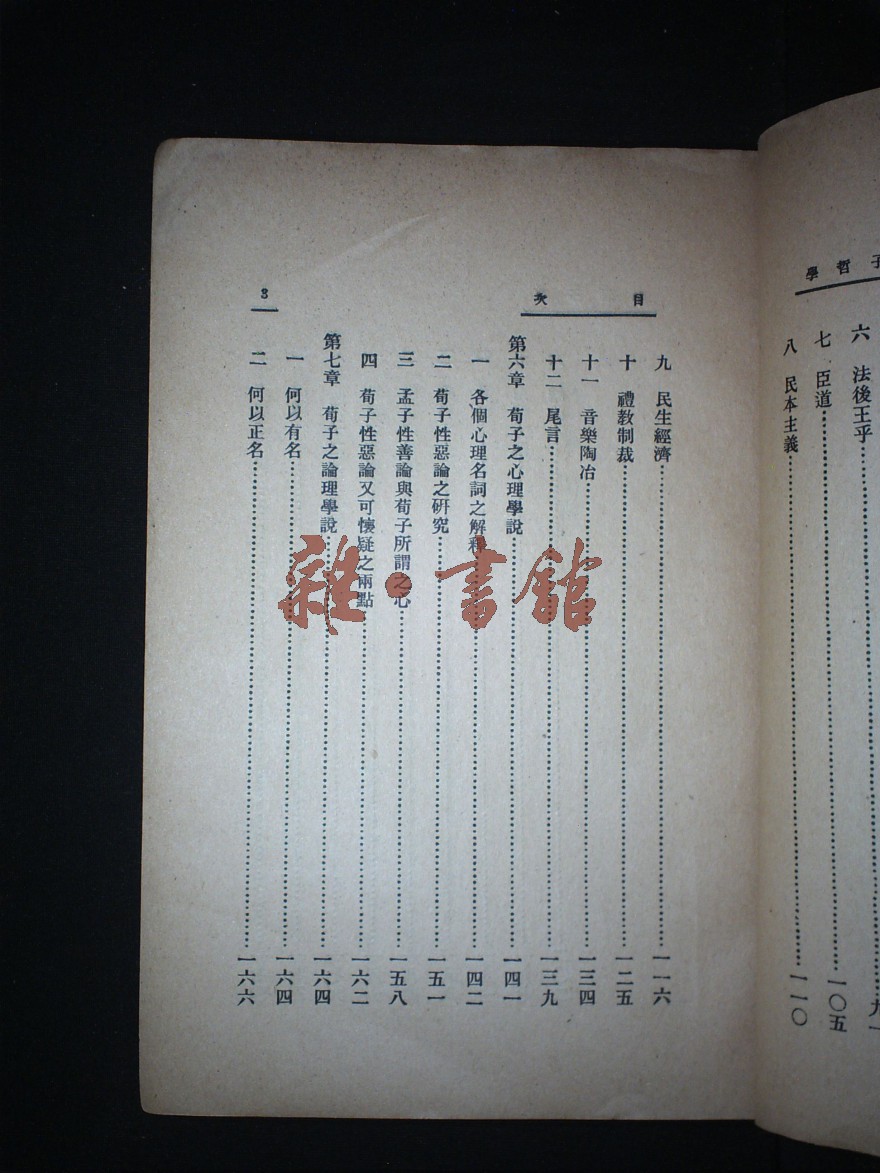 子哲學
六 法後王乎……九一
七 臣道……一〇五
八 民本主義……一一〇
目次
九 民生經濟……一一六
十 禮教制裁……一二五
十一 音樂陶冶……一三四
十二 尾言……一三九
第六章 荀子之心理學說……一四一
一 各個心理名詞之解釋……一四二
二 荀子性惡論之研究……一五一
三 孟子性善論與荀子所謂之心……一五八
四 荀子性惡論又可懷疑之兩點……一六二
第七章 荀子之論理學說……一六四
一 何以有名……一六四
二 何以正名……一六六
3
雜·書館